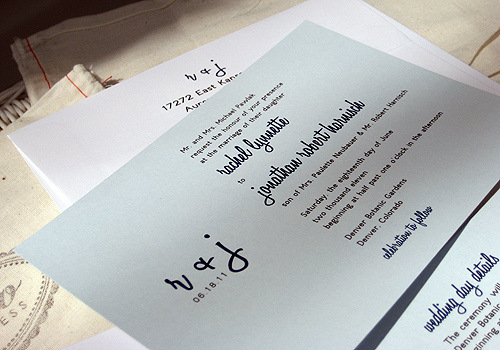 r & j
17272 East Kans
Auro
Mr. and Mrs. Michael Pawlak
request the honour of your presence
at the marriage of their daughter
rachel lynnette
to
jonathan robert harnisch
son of Mrs. Paulette Neubauer & Mr. Robert Harnisch
Saturday, the eighteenth day of June
two thousand eleven
beginning at half past one o'clock in the afternoon
Denver Botanic Gardens
Denver, Colorado
celebration to follow
r & j
06.18.11
wedding day details
The ceremony will
Denver Botanic
beginning
ESS